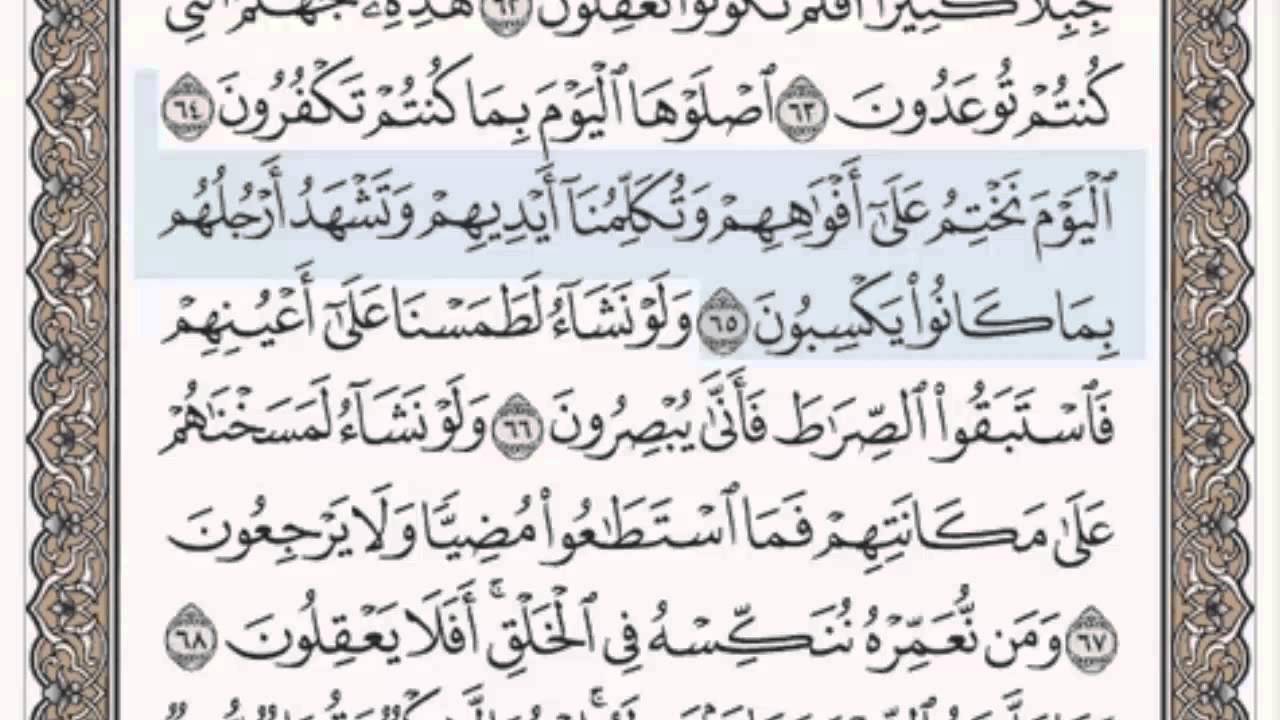 جِبِلًّا كَثِيرًا أَفَلَمْ تَكُونُوا۟ تَعْقِلُونَ ٦٢ هَٰذِهِۦ جَهَنَّمُ ٱلَّتِى
كُنتُمْ تُوعَدُونَ ٦٣ ٱصْلَوْهَا ٱلْيَوْمَ بِمَا كُنتُمْ تَكْفُرُونَ ٦٤
ٱلْيَوْمَ نَخْتِمُ عَلَىٰٓ أَفْوَٰهِهِمْ وَتُكَلِّمُنَآ أَيْدِيهِمْ وَتَشْهَدُ أَرْجُلُهُم
بِمَا كَانُوا۟ يَكْسِبُونَ ٦٥ وَلَوْ نَشَآءُ لَطَمَسْنَا عَلَىٰٓ أَعْيُنِهِمْ
فَٱسْتَبَقُوا۟ ٱلصِّرَٰطَ فَأَنَّىٰ يُبْصِرُونَ ٦٦ وَلَوْ نَشَآءُ لَمَسَخْنَٰهُمْ
عَلَىٰ مَكَانَتِهِمْ فَمَا ٱسْتَطَٰعُوا۟ مُضِيًّا وَلَا يَرْجِعُونَ
٦٧ وَمَن نُّعَمِّرْهُ نُنَكِّسْهُ فِى ٱلْخَلْقِ ۖ أَفَلَا يَعْقِلُونَ ٦٨